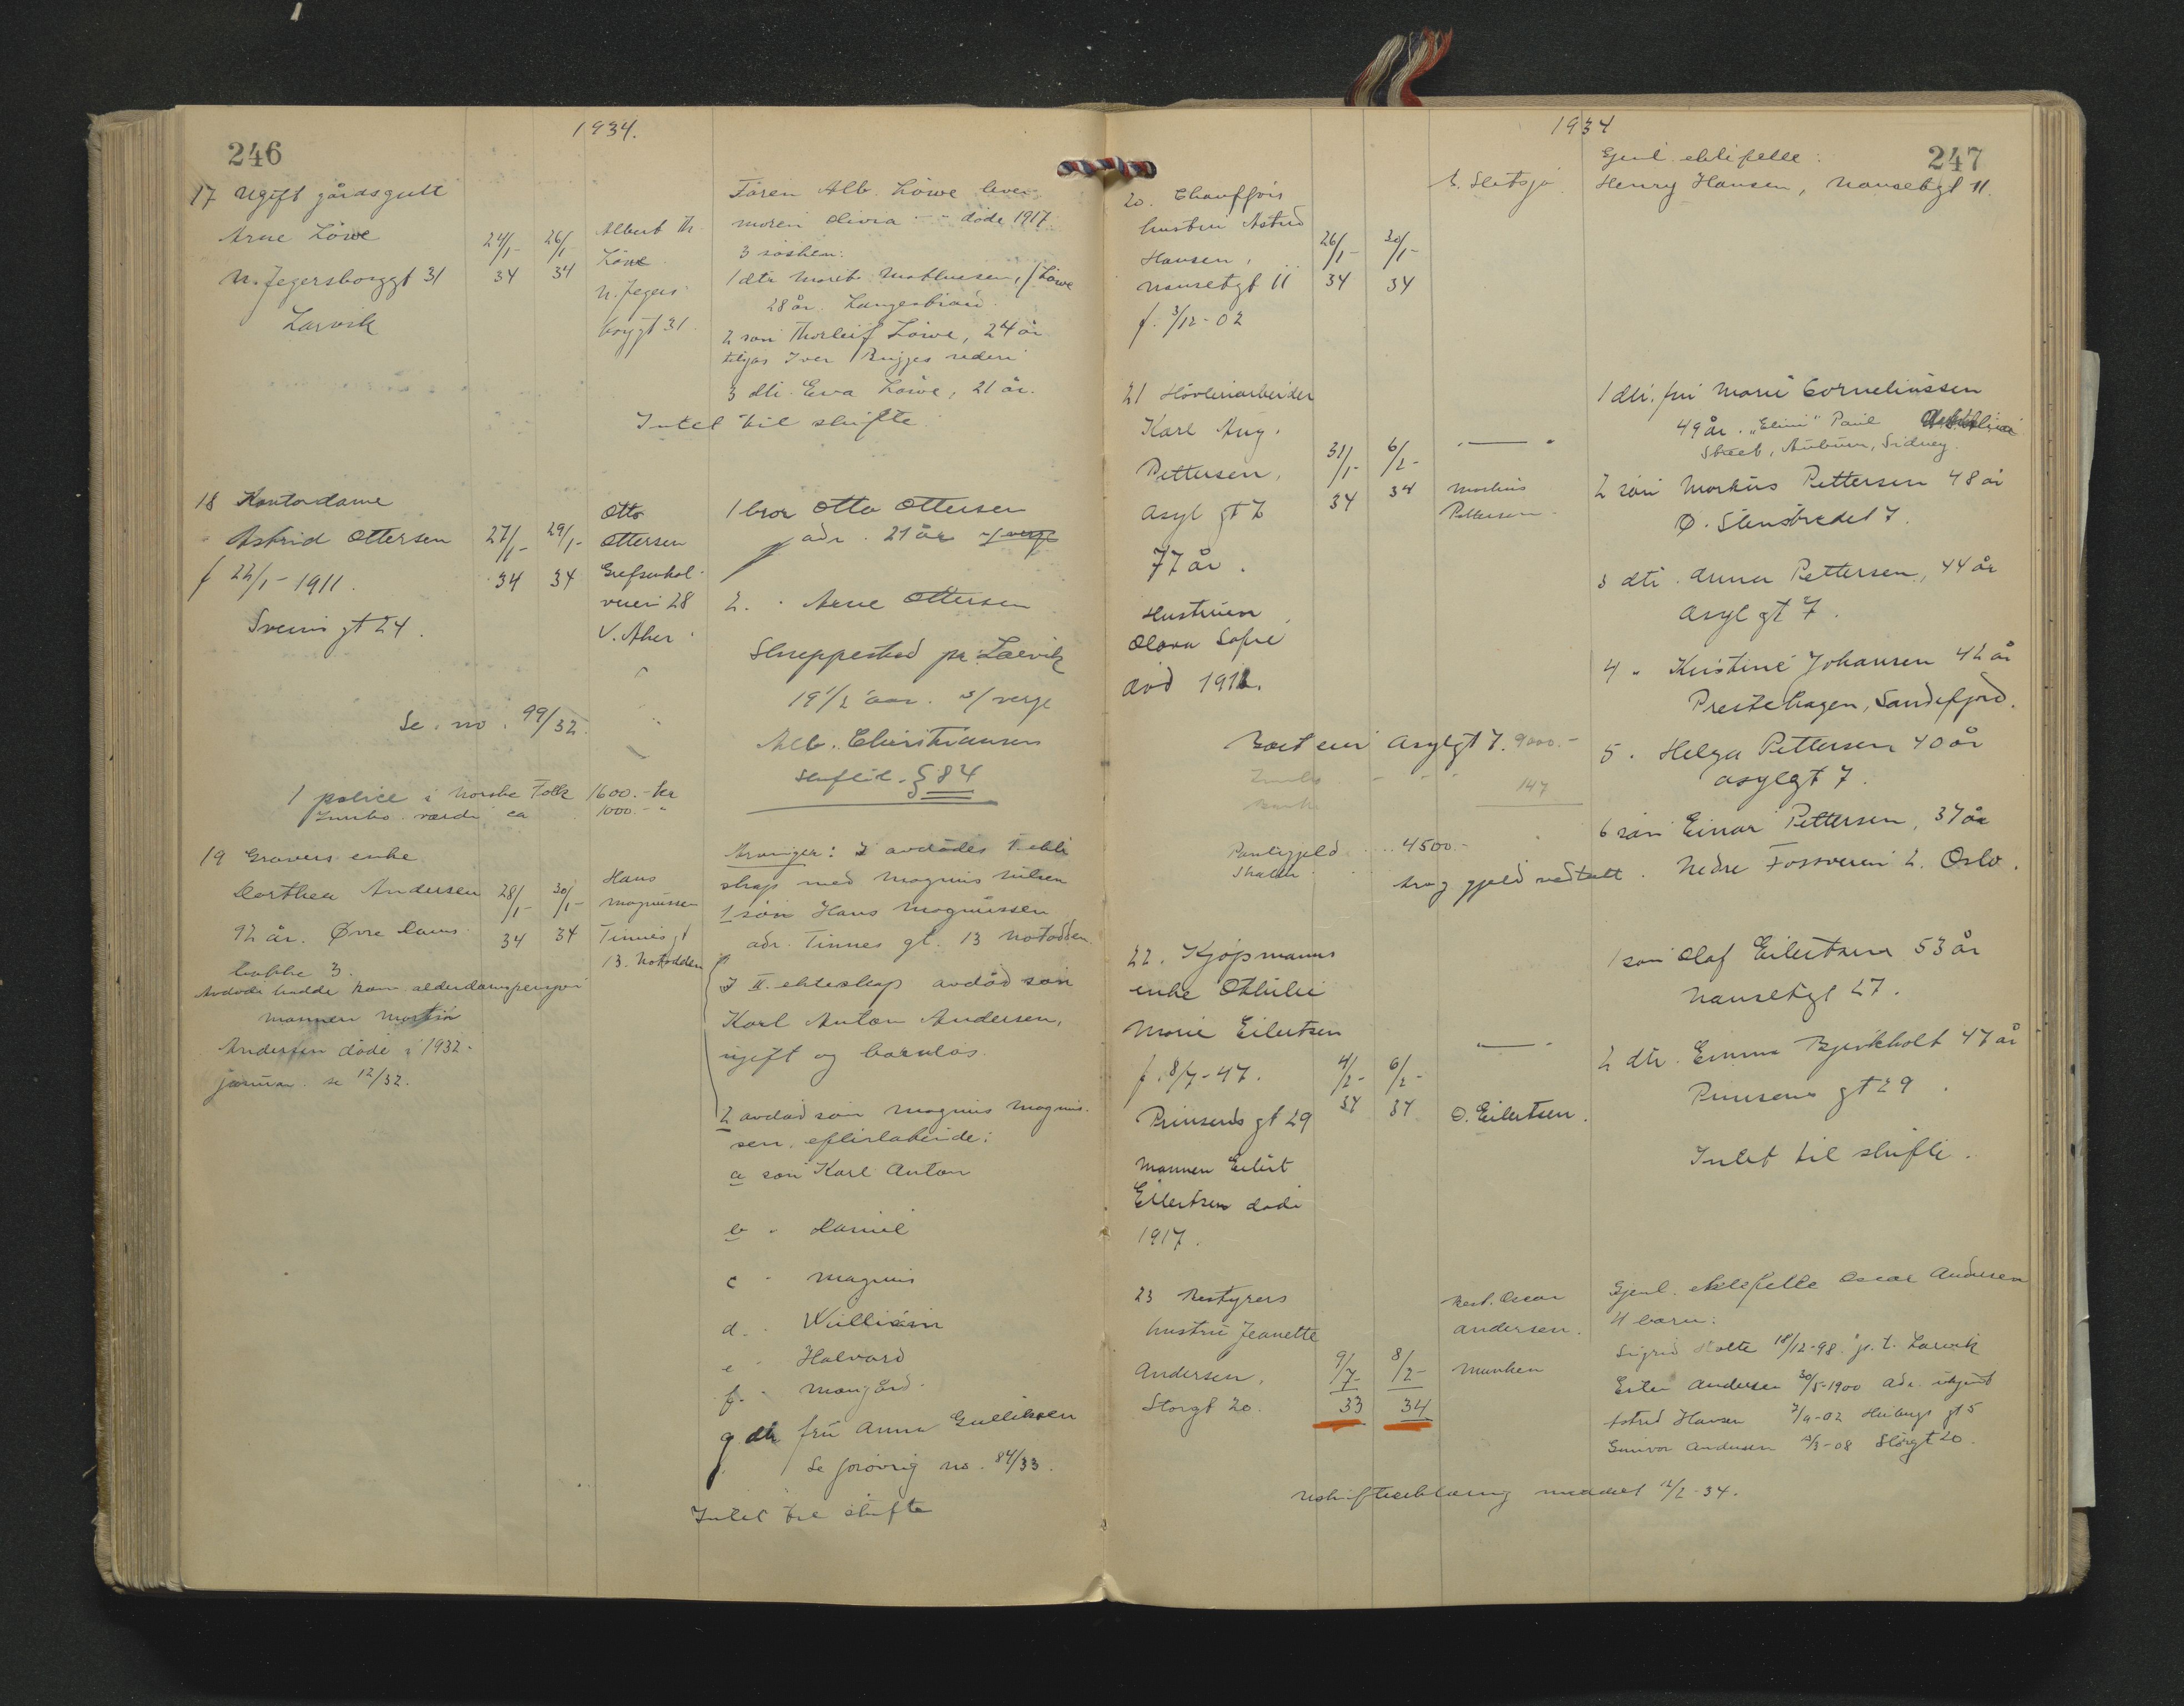 246
1934.
17 Ugift gårdsgutt
Arne Löwe
N. Jegersborggt 31
Larvik
24/1- 34
26/1 34
Albert Th.
Löwe
N. Jegers
borggt 31.
Faren Alb. Löwe lever
moren Olivia - - döde 1917
3 sösken:
1 dtr. Marit Mathiesen, f. Löwe
28 år. Langestrand.
2 sön Thorleif Löwe, 24 år
tilgas Iver Bugges rederi
3 dtr. Eva Löwe, 21 år.
Intet til skifte
18 Kontordame
Astrid Ottersen
f 22/1-1911.
Sveins gt 24.
27/1- 34
29/1- 34
Otto
Ottersen
Grefsenkol-
veien 28
V. Aker.
1 bror Otto Ottersen
adr. 21 år s/ verge
2. " Arne Ottersen
Skreppestad pr. Larvik
19 1/2 aar. s/ verge
Alb. Christiansen
§ 84
Se no. 99/32.
1 police i Norske Folk 1600.- kr
Innbo verdi ca 1000.- "
19 Gravers enke
Dorthea Andersen
92 år. Övre Dams
bakke 3.
Avdöde hadde kom. alderdomspensjon
Mannen Martin
Andersen döde i 1932.
januar. se 12/32.
28/1- 34
30/1- 34
Hans
Magnussen
Tinnesgt
13. Notodden
Arvinger: I avdödes I. ekte
skap med Magnus Nilsen
1 sön Hans Magnussen
adr. Tinnes gt. 13 Notodden.
I II. ekteskap avdöd sön
Karl Anton Andersen,
ugift og barnlös.
2 avdöd sön Magnus Magnus-
sen. efterlatende:
a sön Karl Anton
b " Daniel
c " Magnus
d. " William
e " Halvard
f. "
g dtr fru Anna Gulliksen
Se forövrig no. 84/33.
Intet til skifte
247
1934
20. Chaufförs
hustru Astrid
Hansen,
Nansetgt 11
f. 3/12-02
26/1- 34
30/1- 34
Gjenl. ektefelle:
Henry Hansen, Nansetgt 11.
21 Hövleriarbeider
Karl Aug.
Pettersen,
Asyl gt 7
77 år.
Hustruen
Olava Sofie
död 1912.
31/1- 34
6/2- 34
" — "
Markus
Pettersen
1 dtr. fru Marie Corneliussen
49 år. "Elim" Paul
Street, Auburn, Sidney.
2 sön Markus Pettersen 48 år
Ö. Stensbredet 7.
3 dtr. Anna Pettersen, 44 år
Asyl gt 7.
4 " Kristine Johansen 42 år
Prestehagen, Sandefjord.
5. Helga Pettersen 40 år
Asylgt 7.
6 sön Einar Pettersen, 37 år
Nedre Fossveien 2. Oslo.
Boet eier Asylgt 7. 9000.-
Innbo - - -
Bank 147
Pantegjeld .... 4500.-
Skatter
arv og gjeld vedtatt.
22. Kjöpmanns
enke Othilie
Marie Eilertsen
f. 8/7-47.
Prinsens gt 29
Mannen Eilert
Eilertsen döde
1917.
4/2- 34
6/2- 34
— "
O. Eilertsen.
1 sön Olaf Eilertsen 53 år
Nansetgt 27.
2 dtr. Emma Bjerkholt 47 år
Prinsens gt 29.
Intet til skifte.
23 Bestyrers
hustru Jeanette
Andersen,
Storgt 20.
9/7 33
8/2- 34
Best. Oscar
Andersen.
Munken
Gjenl. ektefelle Oscar Andersen
4 barn:
Sigrid Holte 18/12-98. p.t. Larvik
Andersen 30/5-1900 adr. ukjent
Astrid Hansen 7/9-02 Heibergs gt 5
Gunvor Andersen /3-08 Storgt 20.
Uskifteerklæring meddelt 12/2-34.